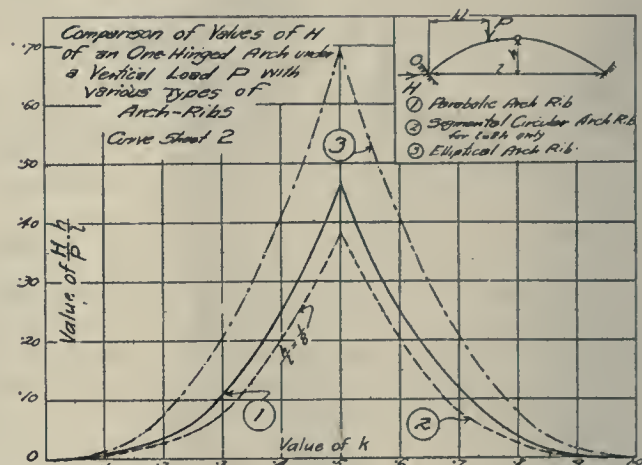 Comparison of Values of H
of an One-Hinged Arch under
a Vertical Load P with
various Types of
Arch-Ribs
Curve Sheet 2
kl
P
O
H
l
① Parabolic Arch Rib
② Segmental Circular Arch Rib
③ Elliptical Arch Rib
.70
.60
.50
.40
.30
.20
.10
0
Value of H/P · h/l
③
①
②
h/l = 1/8
Value of k